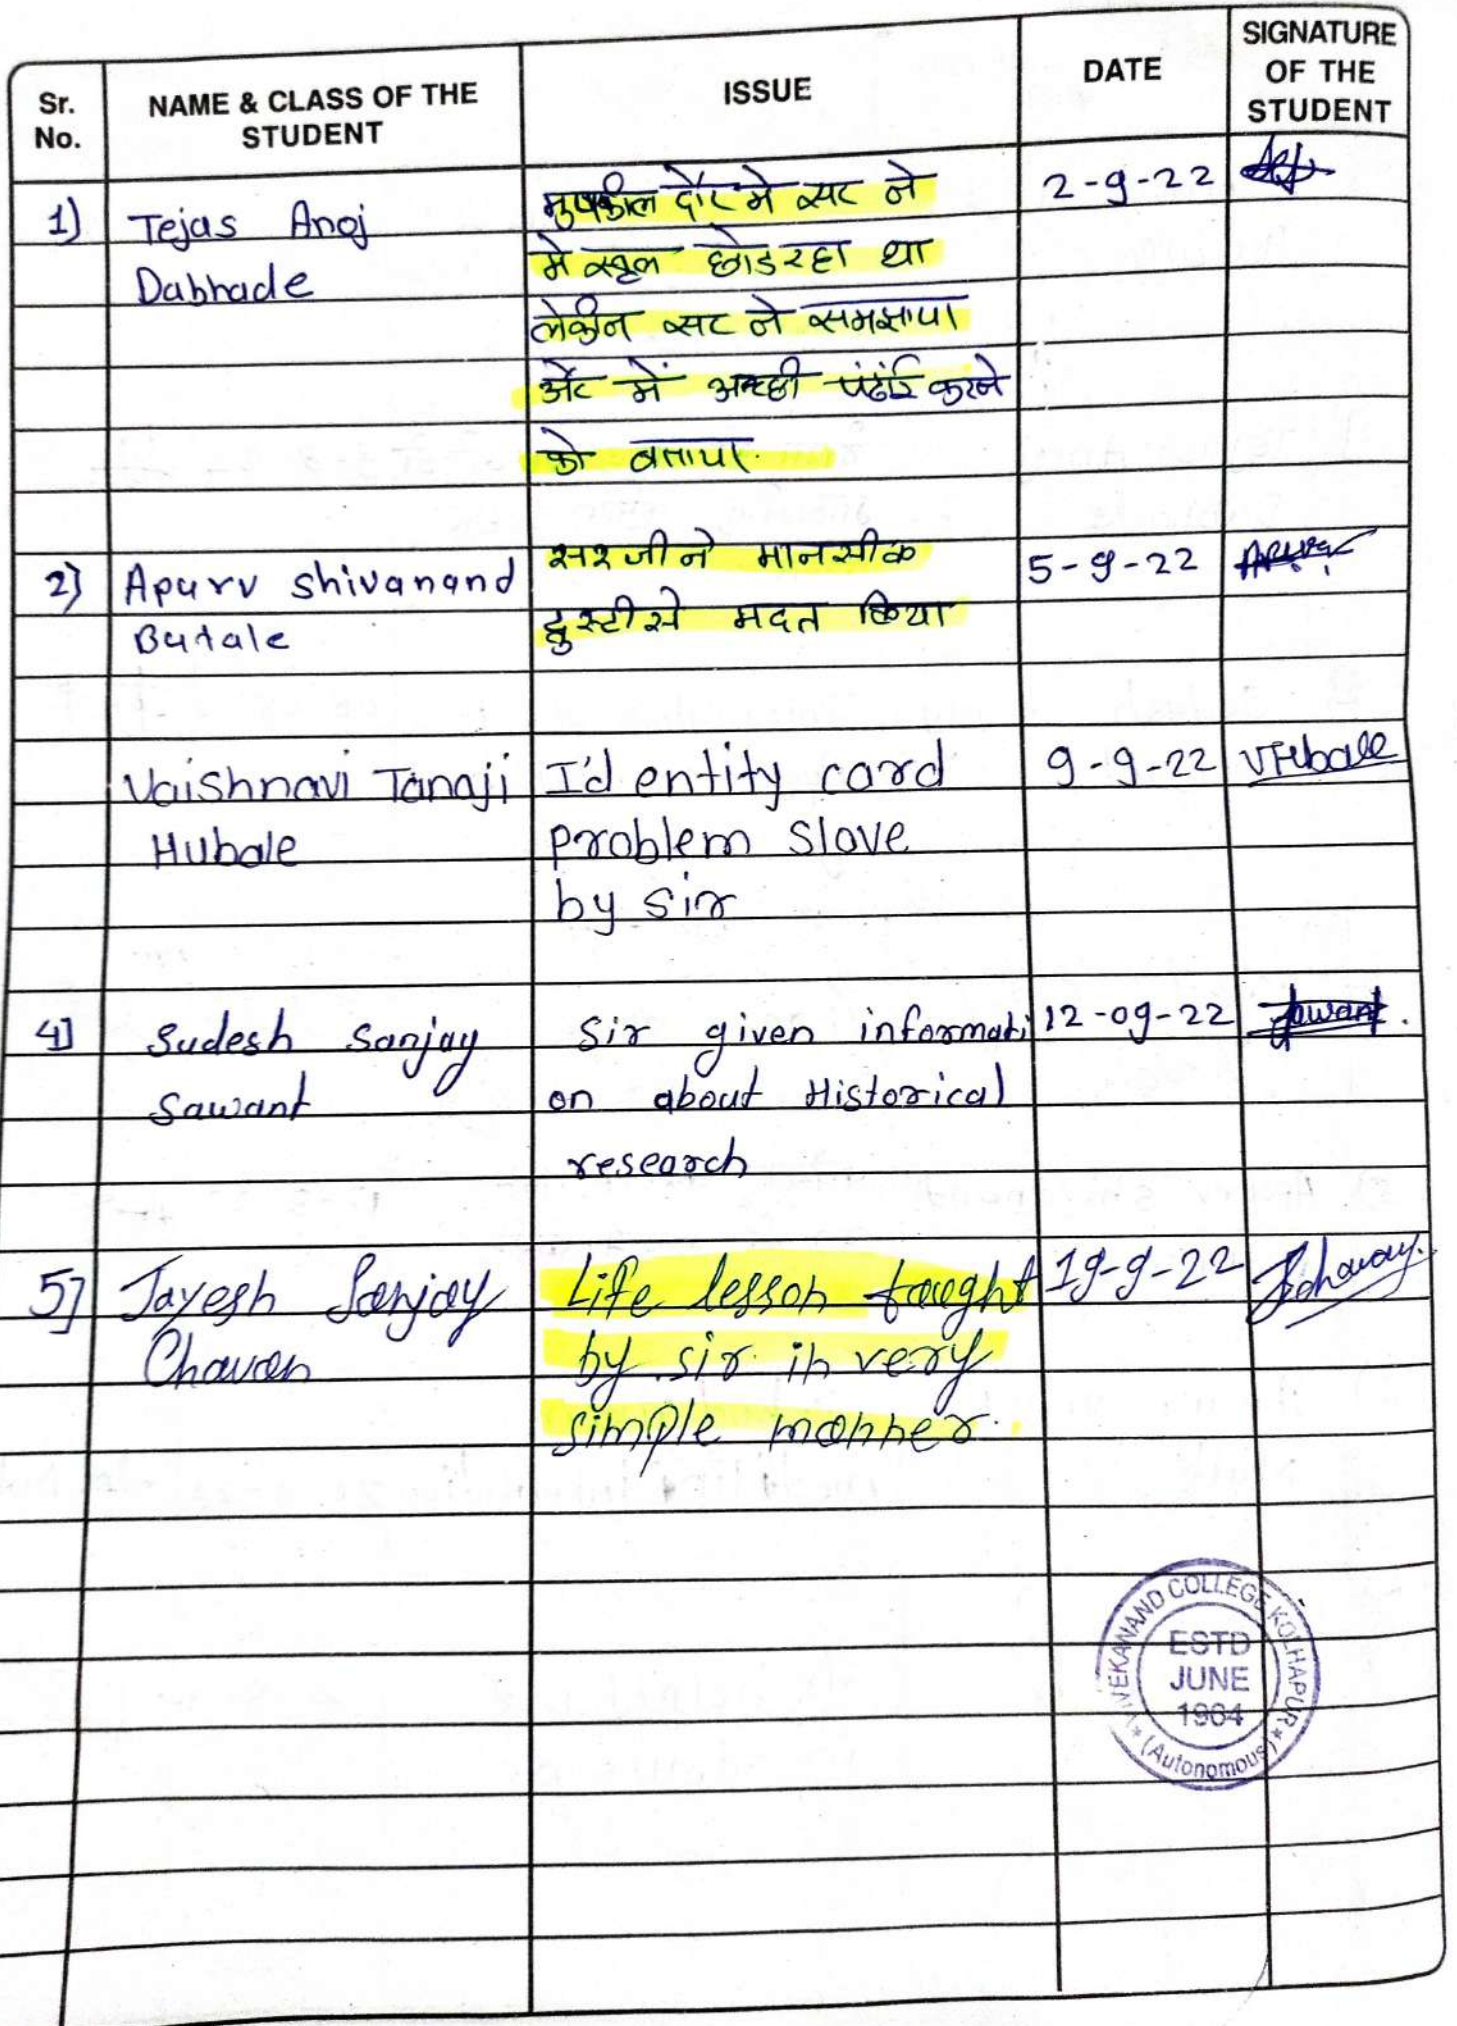 Sr. No.
NAME & CLASS OF THE STUDENT
ISSUE
DATE
SIGNATURE OF THE STUDENT
1) Tejas Anoj
Dabhade
दौर मे सर ने
मे स्कूल छोड रहा था
लेकीन सर ने समझाया
और में अच्छी करने
को बताया.
2-9-22
2) Apurv shivanand
Butale
सर जी ने मानसीक
मदत किया
5-9-22
Vaishnavi Tanaji
Hubale
I'dentity card
problem slove
by sir
9-9-22
VHubale
4] Sudesh Sanjay
Sawant
Sir given informati
on about Historical
research
12-09-22
Sawant.
5] Jayesh Sanjay
Chavan
Life lesson taught
by sir in very
simple manner.
19-9-22
VIVEKANAND COLLEGE KOLHAPUR
ESTD
JUNE
1964
* (Autonomous) *